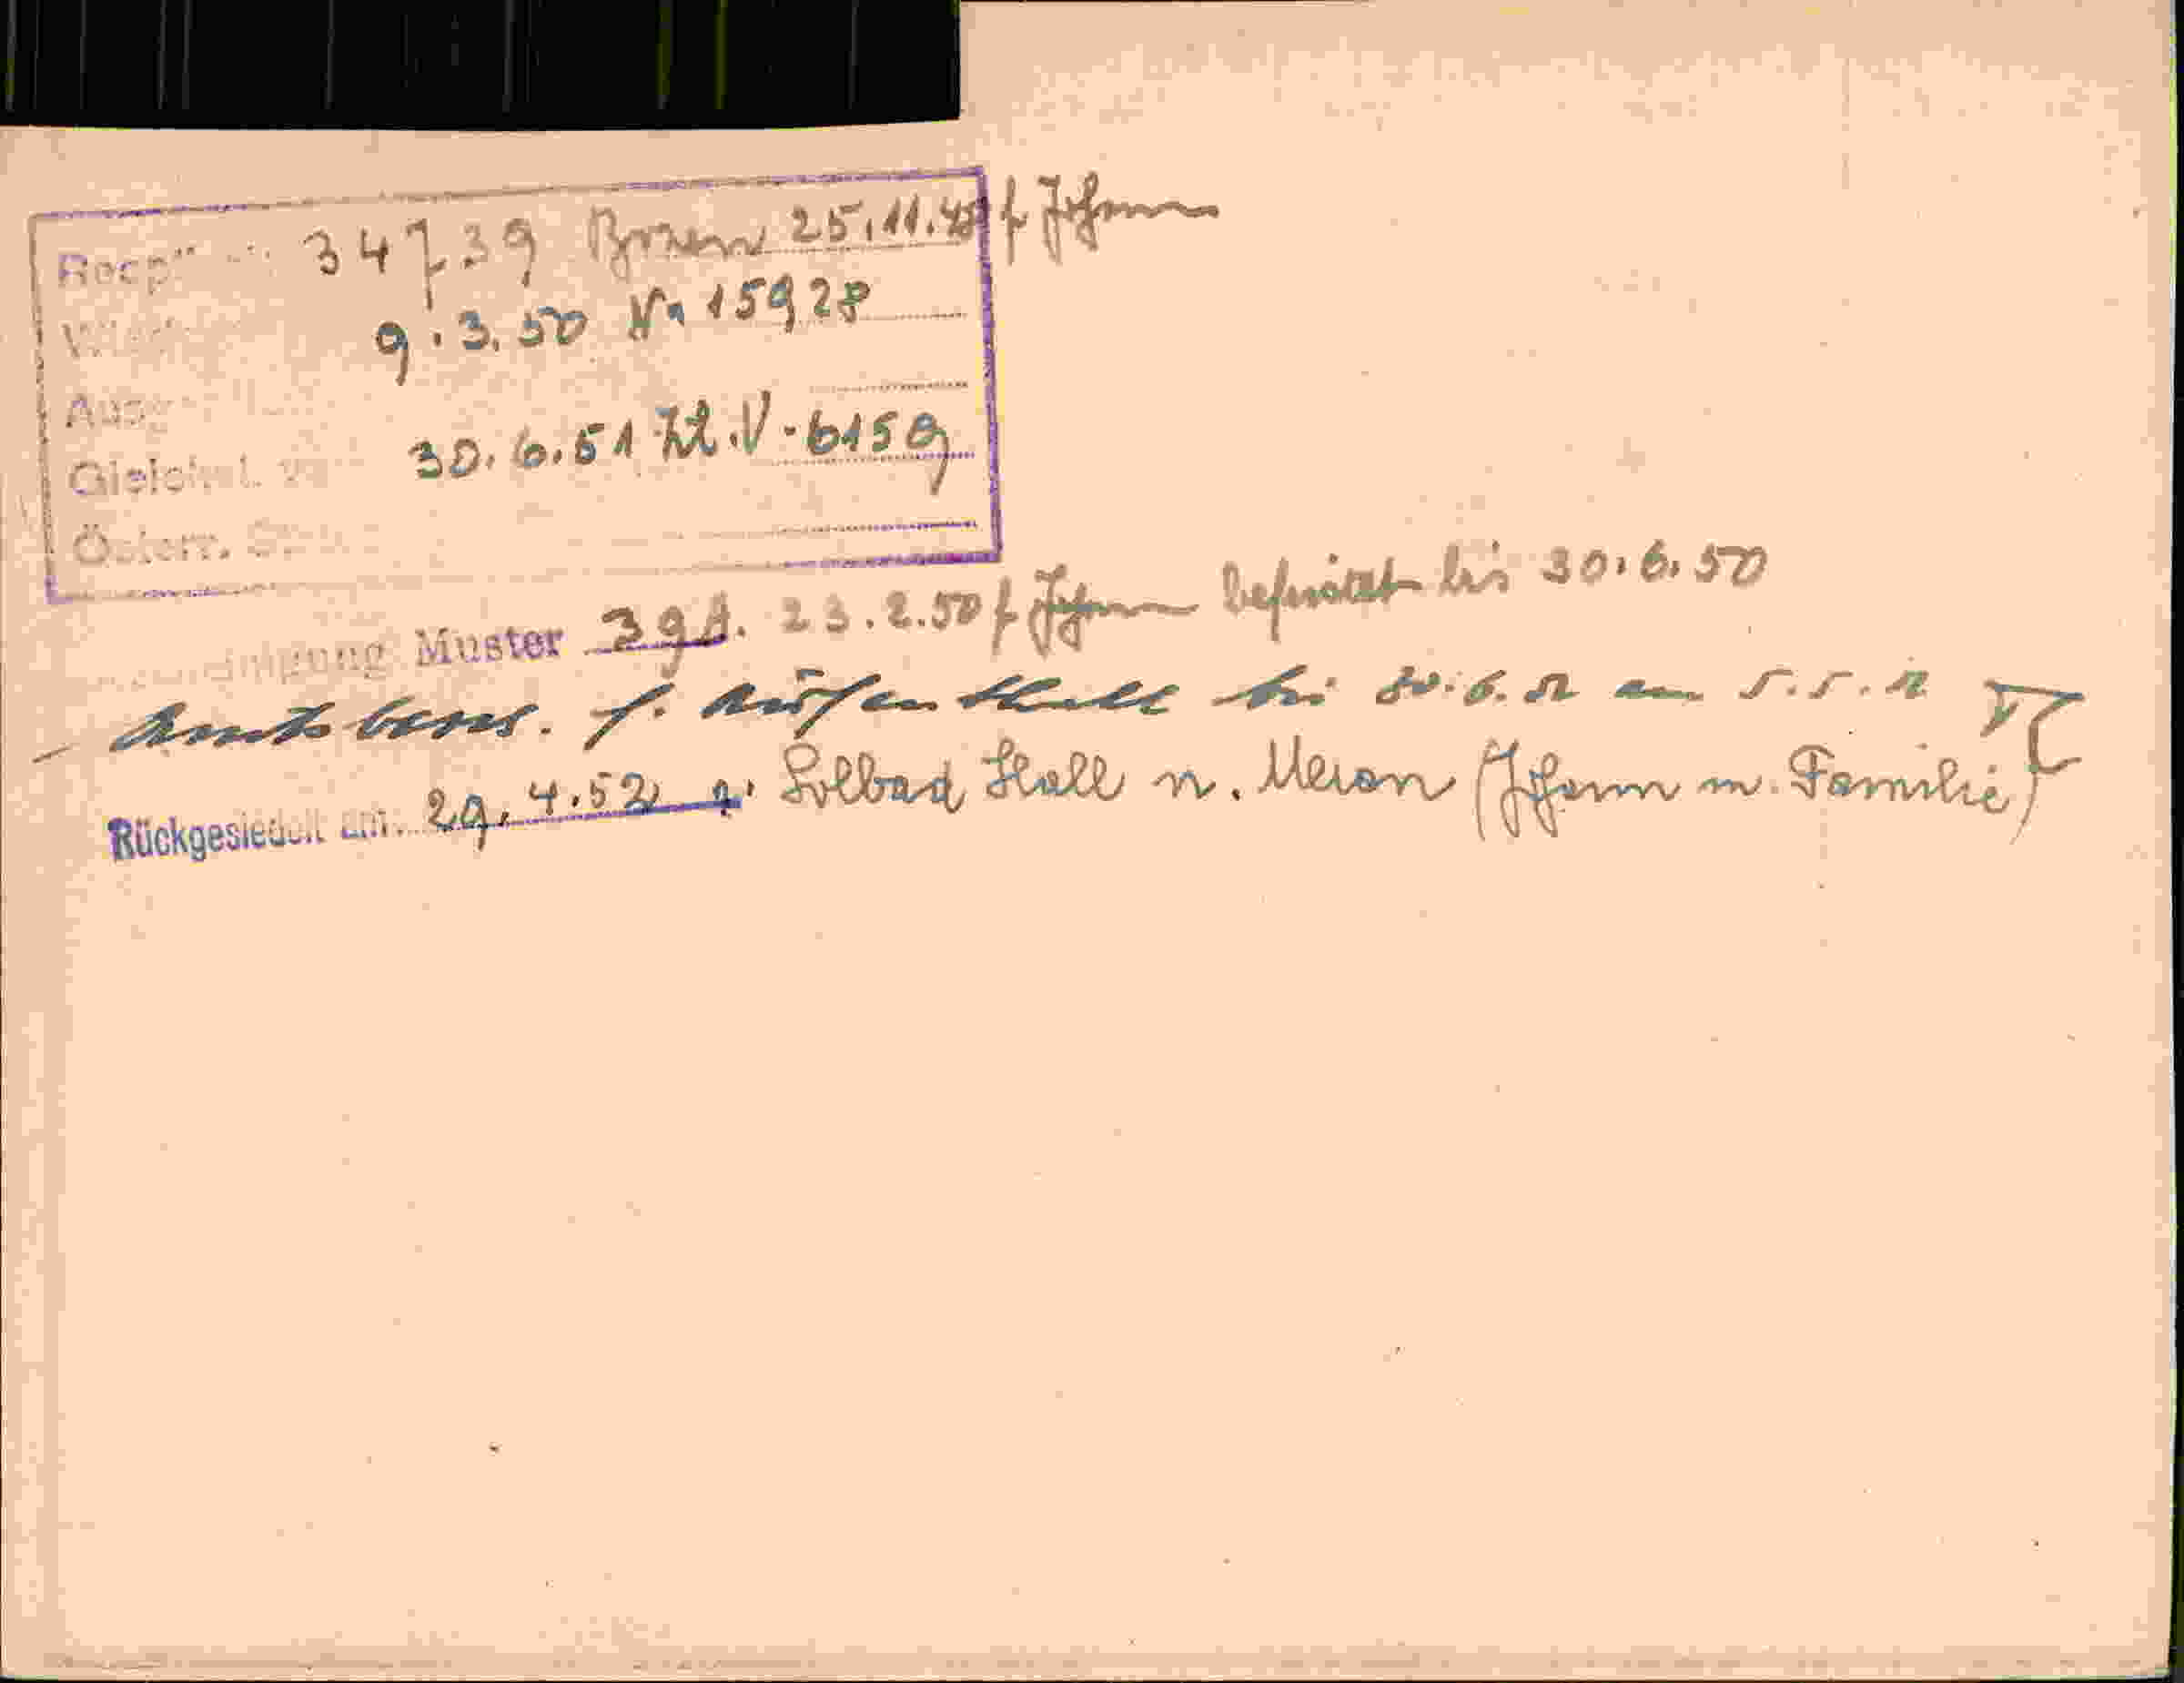 34739 Bozen 25.11.48 f Johann
9.3.50 Va 15928
Ausg
30.6.51 Zl.V-6159
Österr. St
Muster 39A. 23.2.50 f Johann befristet bis 30.6.50
- Amtsbest. f. Aufenthalt bis 30.6.52 am 5.5.52
Rückgesiedelt am 29.4.52 v. Solbad Hall n. Meran (Johann m. Familie)